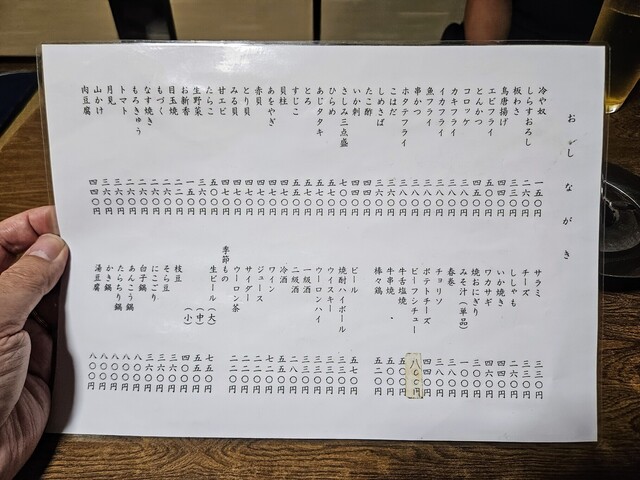 おしながき
冷や奴 一五〇円
しらすおろし 二六〇円
板わさ 三三〇円
鳥唐揚げ 四四〇円
エビフライ 五〇〇円
とんかつ 四四〇円
コロッケ
カキフライ 三八〇円
イカフライ 三八〇円
魚フライ 三八〇円
串かつ 三八〇円
ホタテフライ 三八〇円
こはだ 三三〇円
しめさば 三六〇円
たこ酢 四四〇円
いか刺 四四〇円
さしみ三点盛 七〇〇円
ひらめ 五七〇円
あじタタキ 四七〇円
とろ 五五〇円
すじこ 五五〇円
貝柱 四四〇円
あをやぎ 四四〇円
赤貝 四七〇円
とり貝 四七〇円
みる貝 四七〇円
甘エビ 四七〇円
たらこ 三六〇円
生野菜
お新香 一五〇円
目玉焼 二二〇円
もづく 二二〇円
なす焼き 二六〇円
もろきゅう 二六〇円
トマト 二六〇円
月見 二六〇円
山かけ 三六〇円
肉豆腐 四四〇円
サラミ 三三〇円
チーズ 三三〇円
ししゃも 二六〇円
いか焼き 四四〇円
ワカサギ 四六〇円
焼おにぎり 三〇〇円
みそ汁（単品） 一〇〇円
春巻 三八〇円
チョリソ 三八〇円
ポテトチーズ 四四〇円
ビーフシチュー 八〇〇円
牛舌塩焼 五〇〇円
牛串焼 四五〇円
棒々鶏 五二〇円
ビール 五七〇円
焼酎ハイボール 三三〇円
ウイスキー 三三〇円
ウーロンハイ 三三〇円
一級酒 三三〇円
二級酒 二八〇円
冷酒 五五〇円
ワイン 七二〇円
ジュース 二二〇円
サイダー 二二〇円
ウーロン茶 二二〇円
季節もの
生ビール（大） 七五〇円
（中） 五五〇円
（小） 四〇〇円
枝豆 三六〇円
そら豆 三六〇円
にこごり 三六〇円
白子鍋 八〇〇円
あんこう鍋 八〇〇円
たらちり鍋 八〇〇円
かき鍋 八〇〇円
湯豆腐 八〇〇円